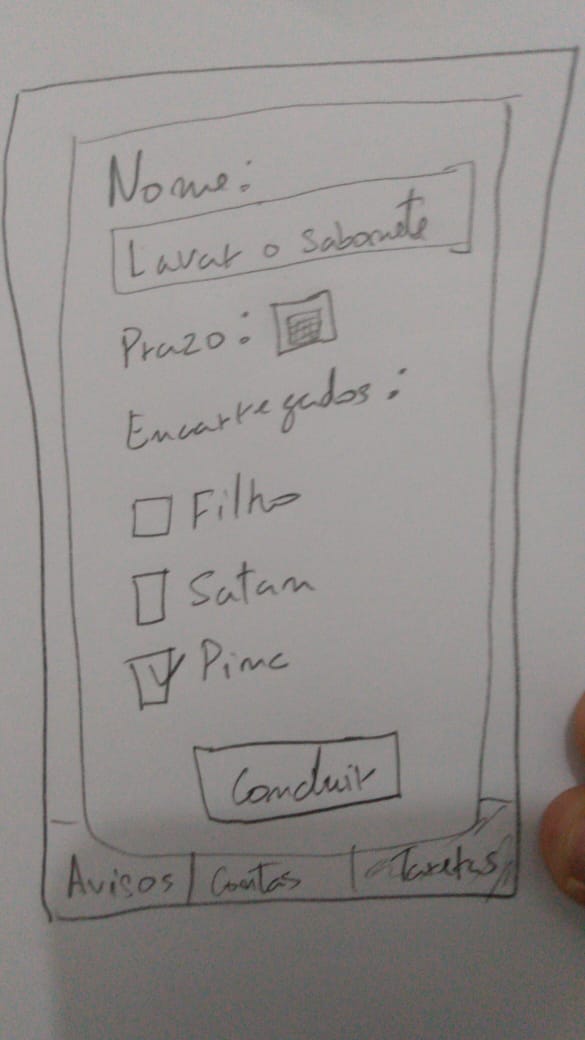 Nome:
Lavar o sabonete
Prazo:
Encarregados:
Filho
Satan
Pinc
Concluir
Avisos Contas Tarefas